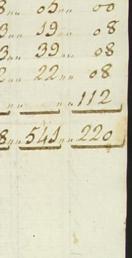 8 „ 05 „ 00
3 „ 19 „ 08
3 „ 39 „ 08
2 „ 22 „ 08
„ „ 112
8 „ 541 „ 220